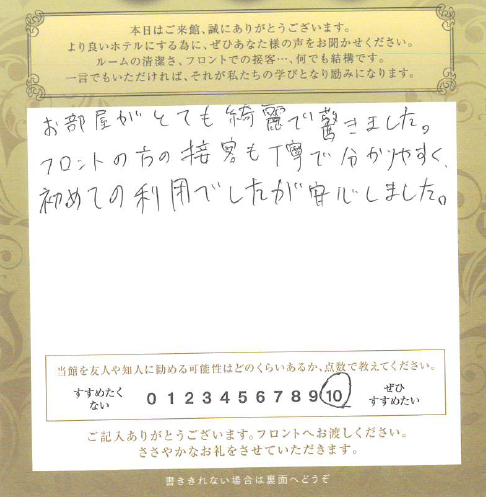 本日はご来館、誠にありがとうございます。
より良いホテルにする為に、ぜひあなた様の声をお聞かせください。
ルームの清潔さ、フロントでの接客…、何でも結構です。
一言でもいただければ、それが私たちの学びとなり励みになります。
お部屋がとても綺麗で驚きました。
フロントの方の接客も丁寧で分かりやすく、
初めての利用でしたが安心しました。
当館を友人や知人に勧める可能性はどのくらいあるか、点数で教えてください。
すすめたくない 0 1 2 3 4 5 6 7 8 9 10 ぜひすすめたい
ご記入ありがとうございます。フロントへお渡しください。
ささやかなお礼をさせていただきます。
書ききれない場合は裏面へどうぞ